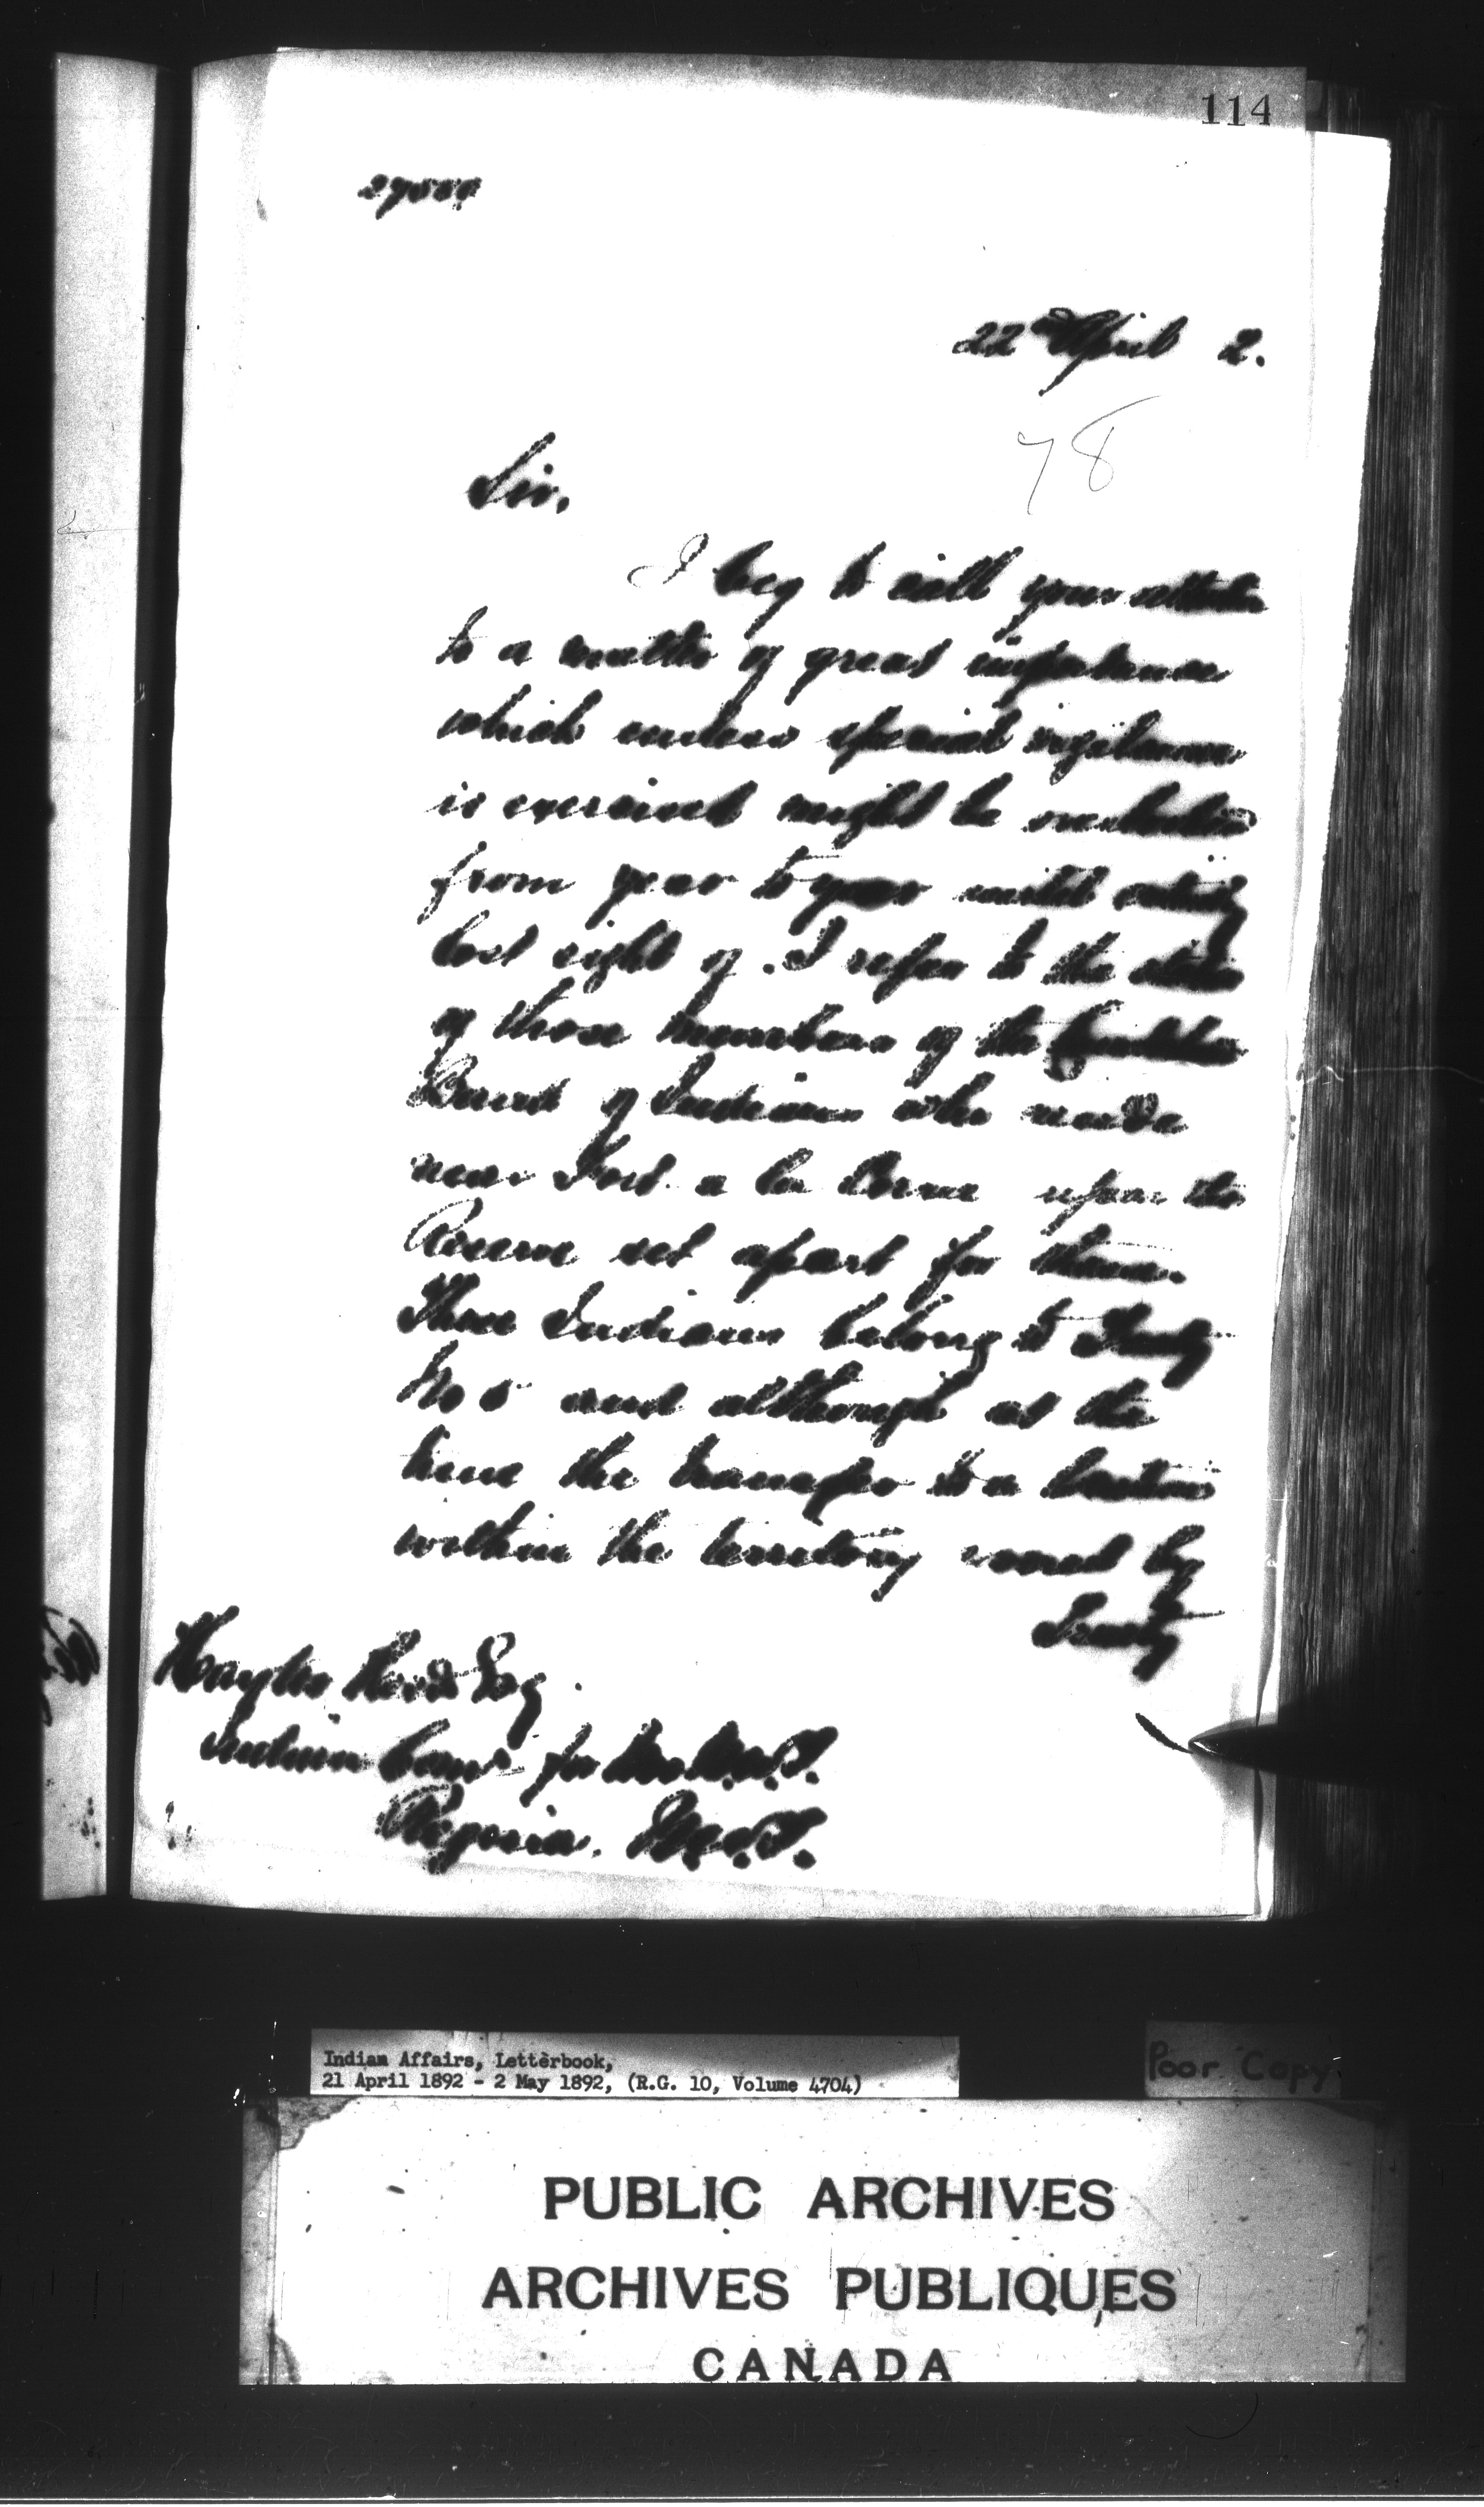 114
22nd April 2.
78
Sir,
I beg to call your attention
to a matter of great importance
which unless special vigilance
is exercised might be overlooked
from year to year until entirely
lost sight of. I refer to the
of those members of the Cumberland
Band of Indians who reside
near Fort a la Corne upon the
Reserve set apart for them.
These Indians belong to Treaty
No 5 and although at the
time the transfer to a location
within the territory covered by
Treaty
Hayter Reed Esq.
Indian Commr for the N.W.T.
Regina. N.W.T.
Indian Affairs, Letterbook,
21 April 1892 - 2 May 1892, (R.G. 10, Volume 4704)
Poor Copy
PUBLIC ARCHIVES
ARCHIVES PUBLIQUES
CANADA